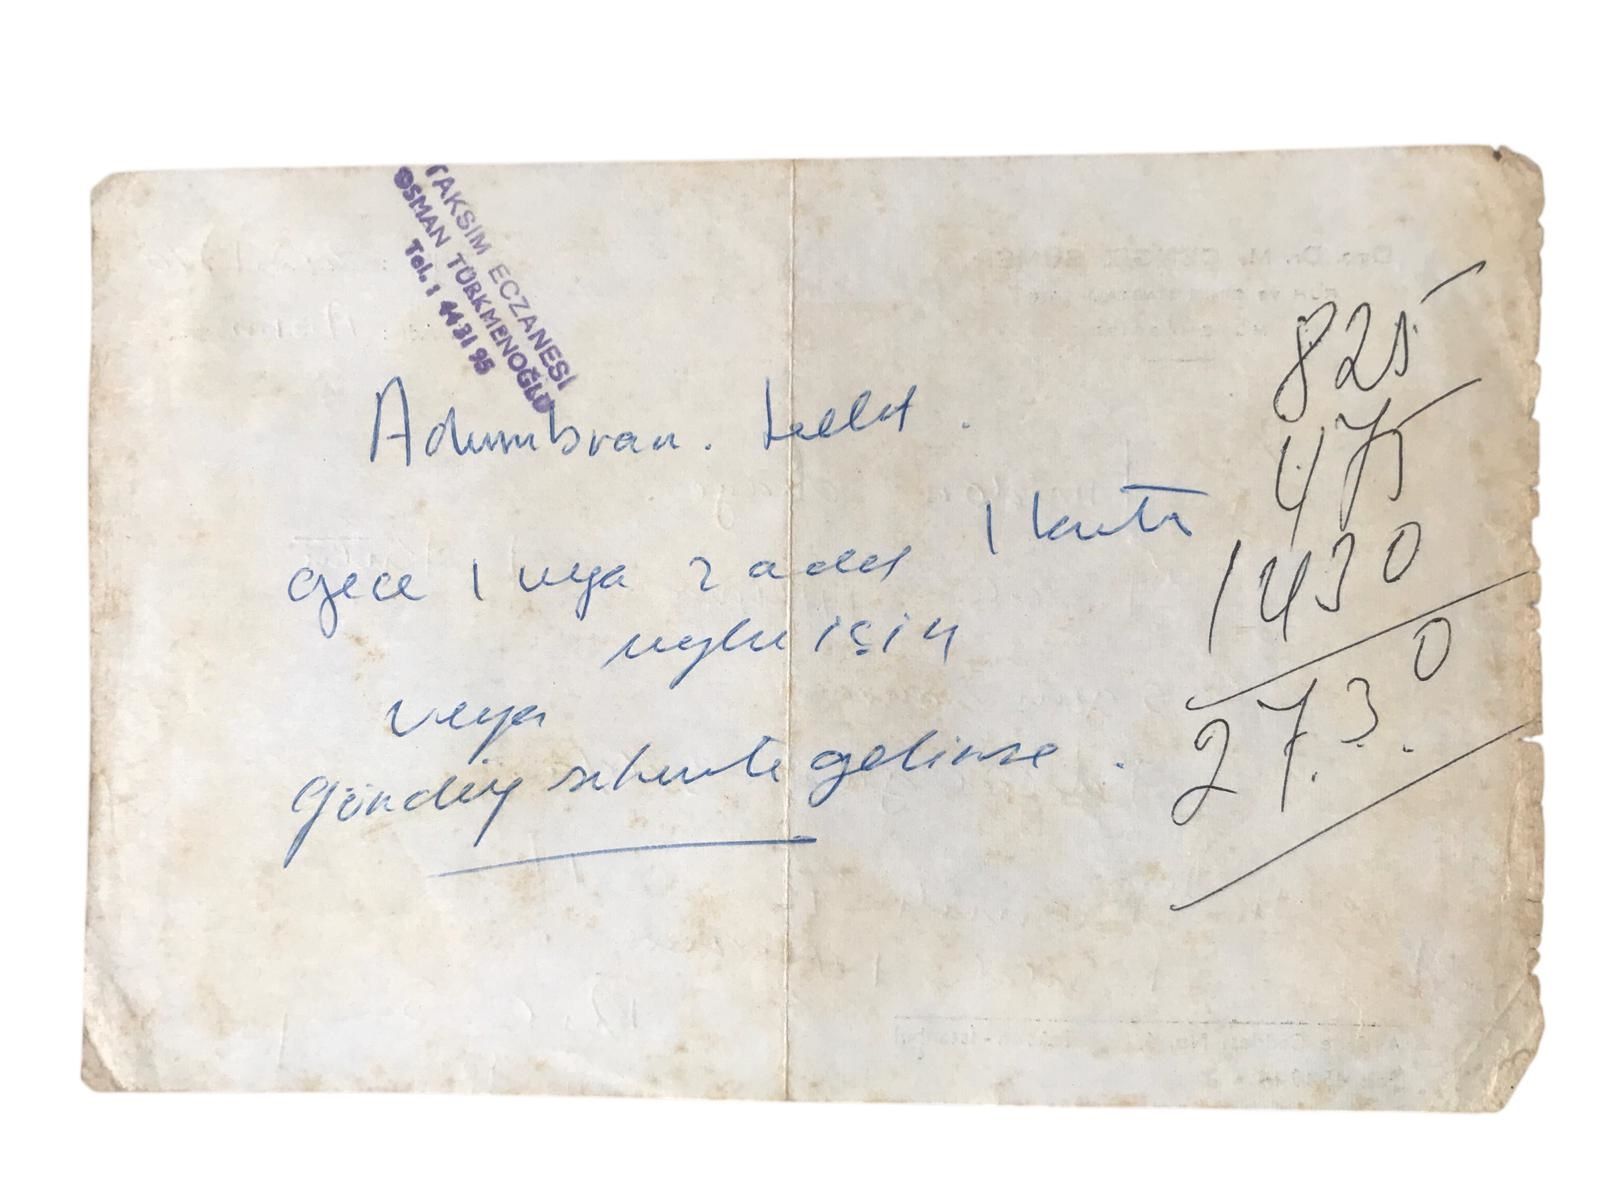 TAKSIM ECZANESİ
OSMAN TÜRKMENOĞLU
Tel. : 44 31 95
Adumbran. tablet.
1 kutu
gece 1 veya 2 adet
uyku için
veya
Gündüz sıkıntı gelirse.
825
475
1430
27.3.0